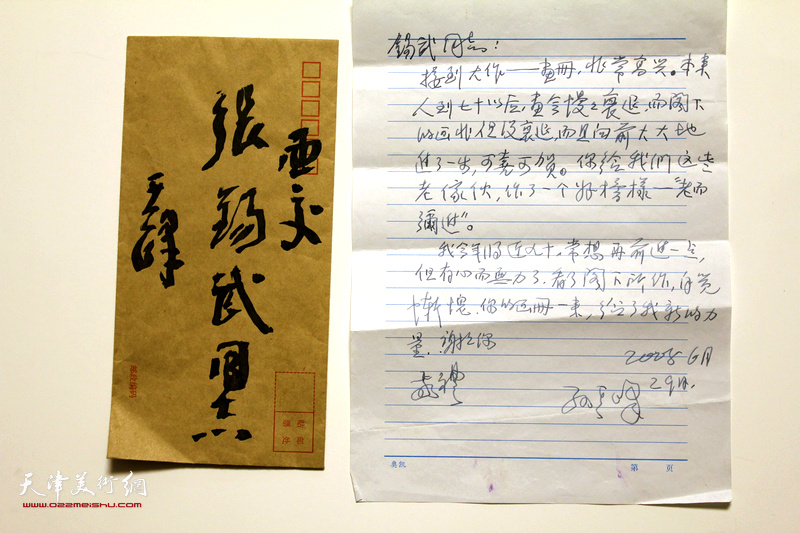 面交
張錫武同志
王峰
贴邮
票处
锡武同志：
接到大作——画册，非常高兴。本来
人到七十以后，画会慢慢衰退，而阁下
的画非但没衰退，而且向前大大地
进了一步，可喜可贺。你给我们这些
老傢伙，作了一个好榜样—“老而
彌进”。
我今年将近九十，常想再前进一点，
但有心而無力了。看了阁下所作，自觉
惭愧。你的画册一来，给了我新的力
量，谢谢你
敬禮
6月
29日.
奥凯
第 页
天津美術網
www.022meishu.com